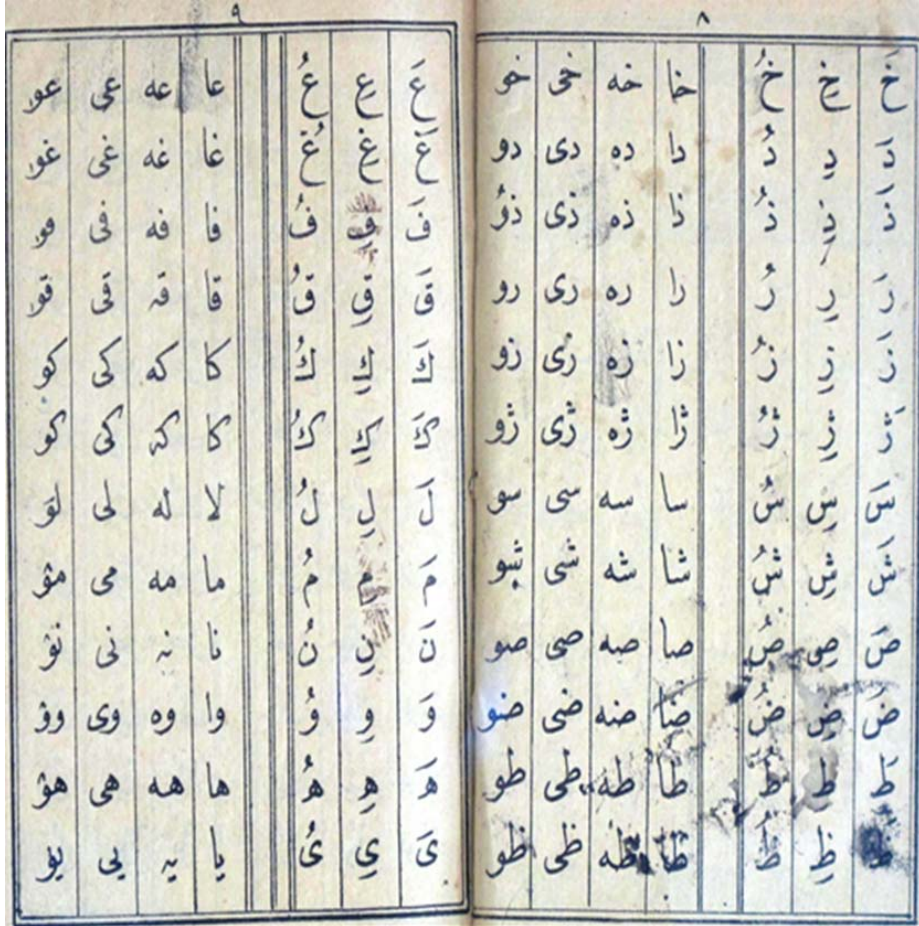 ٨
خَ خِ خُ خا خه خی خو
دَ دِ دُ دا ده دی دو
ذَ ذِ ذُ ذا ذه ذی ذو
رَ رِ رُ را ره ری رو
زَ زِ زُ زا زه زی زو
ژَ ژِ ژُ ژا ژه ژی ژو
سَ سِ سُ سا سه سی سو
شَ شِ شُ شا شه شی شو
صَ صِ صُ صا صه صی صو
ضَ ضِ ضُ ضا ضه ضی ضو
طَ طِ طُ طا طه طی طو
ظِ ظُ ظا ظه ظی ظو
٩
عَ عِ عُ عا عه عی عو
غَ غِ غُ غا غه غی غو
فَ فِ فُ فا فه فی فو
قَ قِ قُ قا قه قی قو
كَ كِ كُ کا که کی کو
كَ كِ كُ کا که کی کو
لَ لِ لُ لا له لی لۆ
مَ مِ مُ ما مه می مۆ
نَ نِ نُ نا نه نی نۆ
وَ وِ وُ وا وه وی وۆ
هَ هِ هُ ها هه هی هۆ
یَ یِ یُ یا یه یی یو